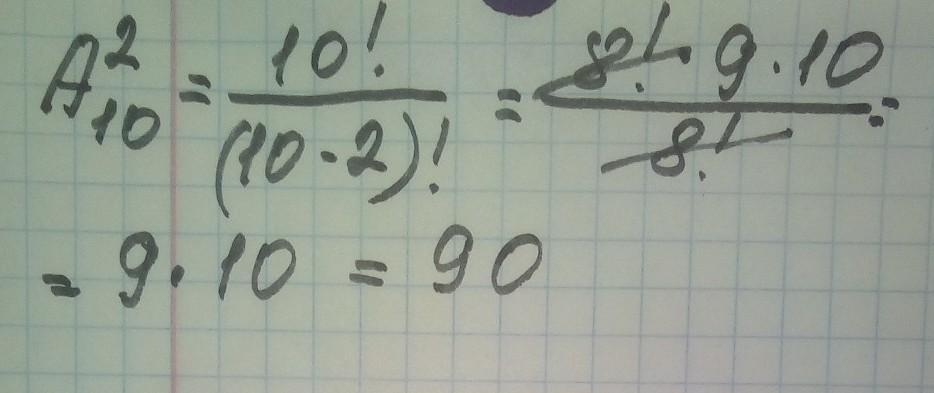 A²₁₀ = 10! / (10 - 2)! = 8! · 9 · 10 / 8! =
= 9 · 10 = 90